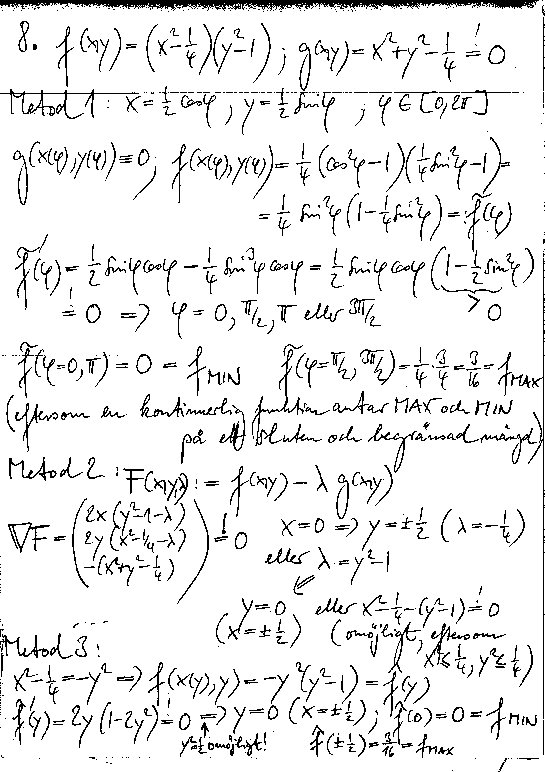 8. f(x,y) = (x²-1/4)(y²-1) ; g(x,y) = x²+y²-1/4 =! 0
Metod 1: x = 1/2 cosφ ; y = 1/2 sinφ ; φ ∈ [0,2π]
g(x(φ),y(φ)) ≡ 0; f(x(φ),y(φ)) = 1/4 (cos²φ-1)(1/4 sin²φ-1) =
= 1/4 sin²φ (1-1/4 sin²φ) =: f̃(φ)
f̃'(φ) = 1/2 sinφcosφ - 1/4 sin³φ cosφ = 1/2 sinφ cosφ (1-1/2 sin²φ)
=! 0 => φ = 0, π/2, π eller 3π/2 > 0
f̃(φ=0,π) = 0 = f_MIN f̃(φ=π/2, 3π/2) = 1/4 · 3/4 = 3/16 = f_MAX
(eftersom en kontinuerlig funktion antar MAX och MIN
på ett sluten och begränsad mängd)
Metod 2: F(x,y,λ) := f(x,y) - λ g(x,y)
∇F = (2x(y²-1-λ) x=0 => y=±1/2 (λ=-1/4)
2y(x²-1/4-λ) =! 0 eller λ = y²-1
-(x²+y²-1/4))
y=0 eller x²-1/4-(y²-1) =! 0
(x=±1/2) (omöjligt, eftersom
x²≤1/4, y²≤1/4)
Metod 3:
x²-1/4 = -y² => f(x(y),y) = -y²(y²-1) = f̂(y)
f̂'(y) = 2y(1-2y²) =! 0 => y=0 (x=±1/2) ; f̂(0) = 0 = f_MIN
y²=1/2 omöjligt! f̂(±1/2) = 3/16 = f_MAX